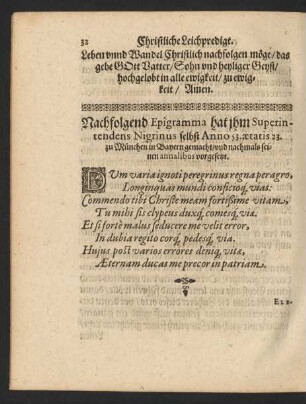 32 Christliche Leichpredigt.
Leben vnnd Wandel Christlich nachfolgen möge/das
gebe GOtt Vatter/Sohn vnd heyliger Geyst/
hochgelobt in alle ewigkeit/zu ewig-
keit/Amen.
Nachfolgend Epigramma hat jhm Superin-
tendens Nigrinus selbst Anno 53.ætatis 23.
zu München in Bayern gemacht/vnd nachmals sei-
nen annalibus vorgesetzt.
DUm varia ignoti peregrinus regna peragro,
Longinquas mundi conficioq; vias:
Commendo tibi Christe meam fortissime vitam,
Tu mihi sis clypeus duxq; comesq; via.
Et si fortè malus seducere me velit error,
In dubia regito corq; pedesq; via.
Hujus post varios errores deniq; vitæ,
Æternam ducas me precor in patriam.